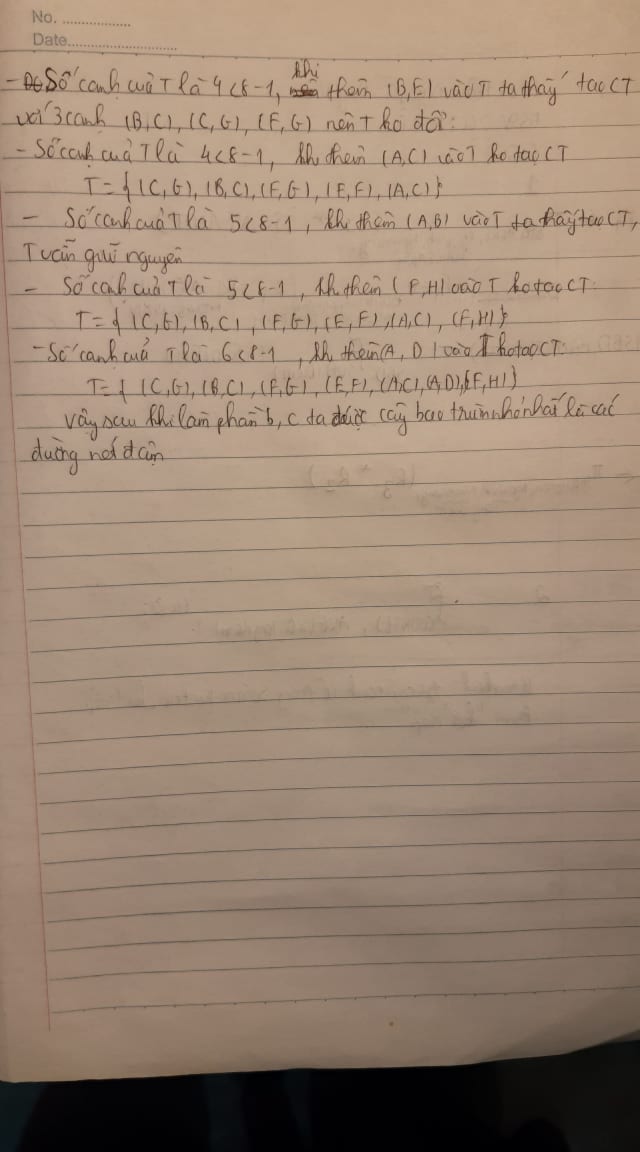 No. ...................
Date..............................
- Số cạnh của T là 4<8-1, khi thêm (B,E) vào T ta thấy tạo CT
với 3 cạnh (B,C), (C,G), (E,G) nên T ko đổi:
- Số cạnh của T là 4<8-1, khi thêm (A,C) vào T ko tạo CT
T={(C,G), (B,C), (E,G), (E,F), (A,C)}
- Số cạnh của T là 5<8-1, khi thêm (A,B) vào T ta thấy tạo CT,
T vẫn giữ nguyên
- Số cạnh của T là 5<8-1, khi thêm (F,H) vào T ko tạo CT.
T={(C,G), (B,C), (E,G), (E,F), (A,C), (F,H)}
- Số cạnh của T là 6<8-1, khi thêm (A, D) vào T ko tạo CT:
T={(C,G), (B,C), (E,G), (E,F), (A,C), (A,D), (F,H)}
Vậy sau khi làm phần b, c ta được cây bao trùm nhỏ nhất là các
đường nét đậm